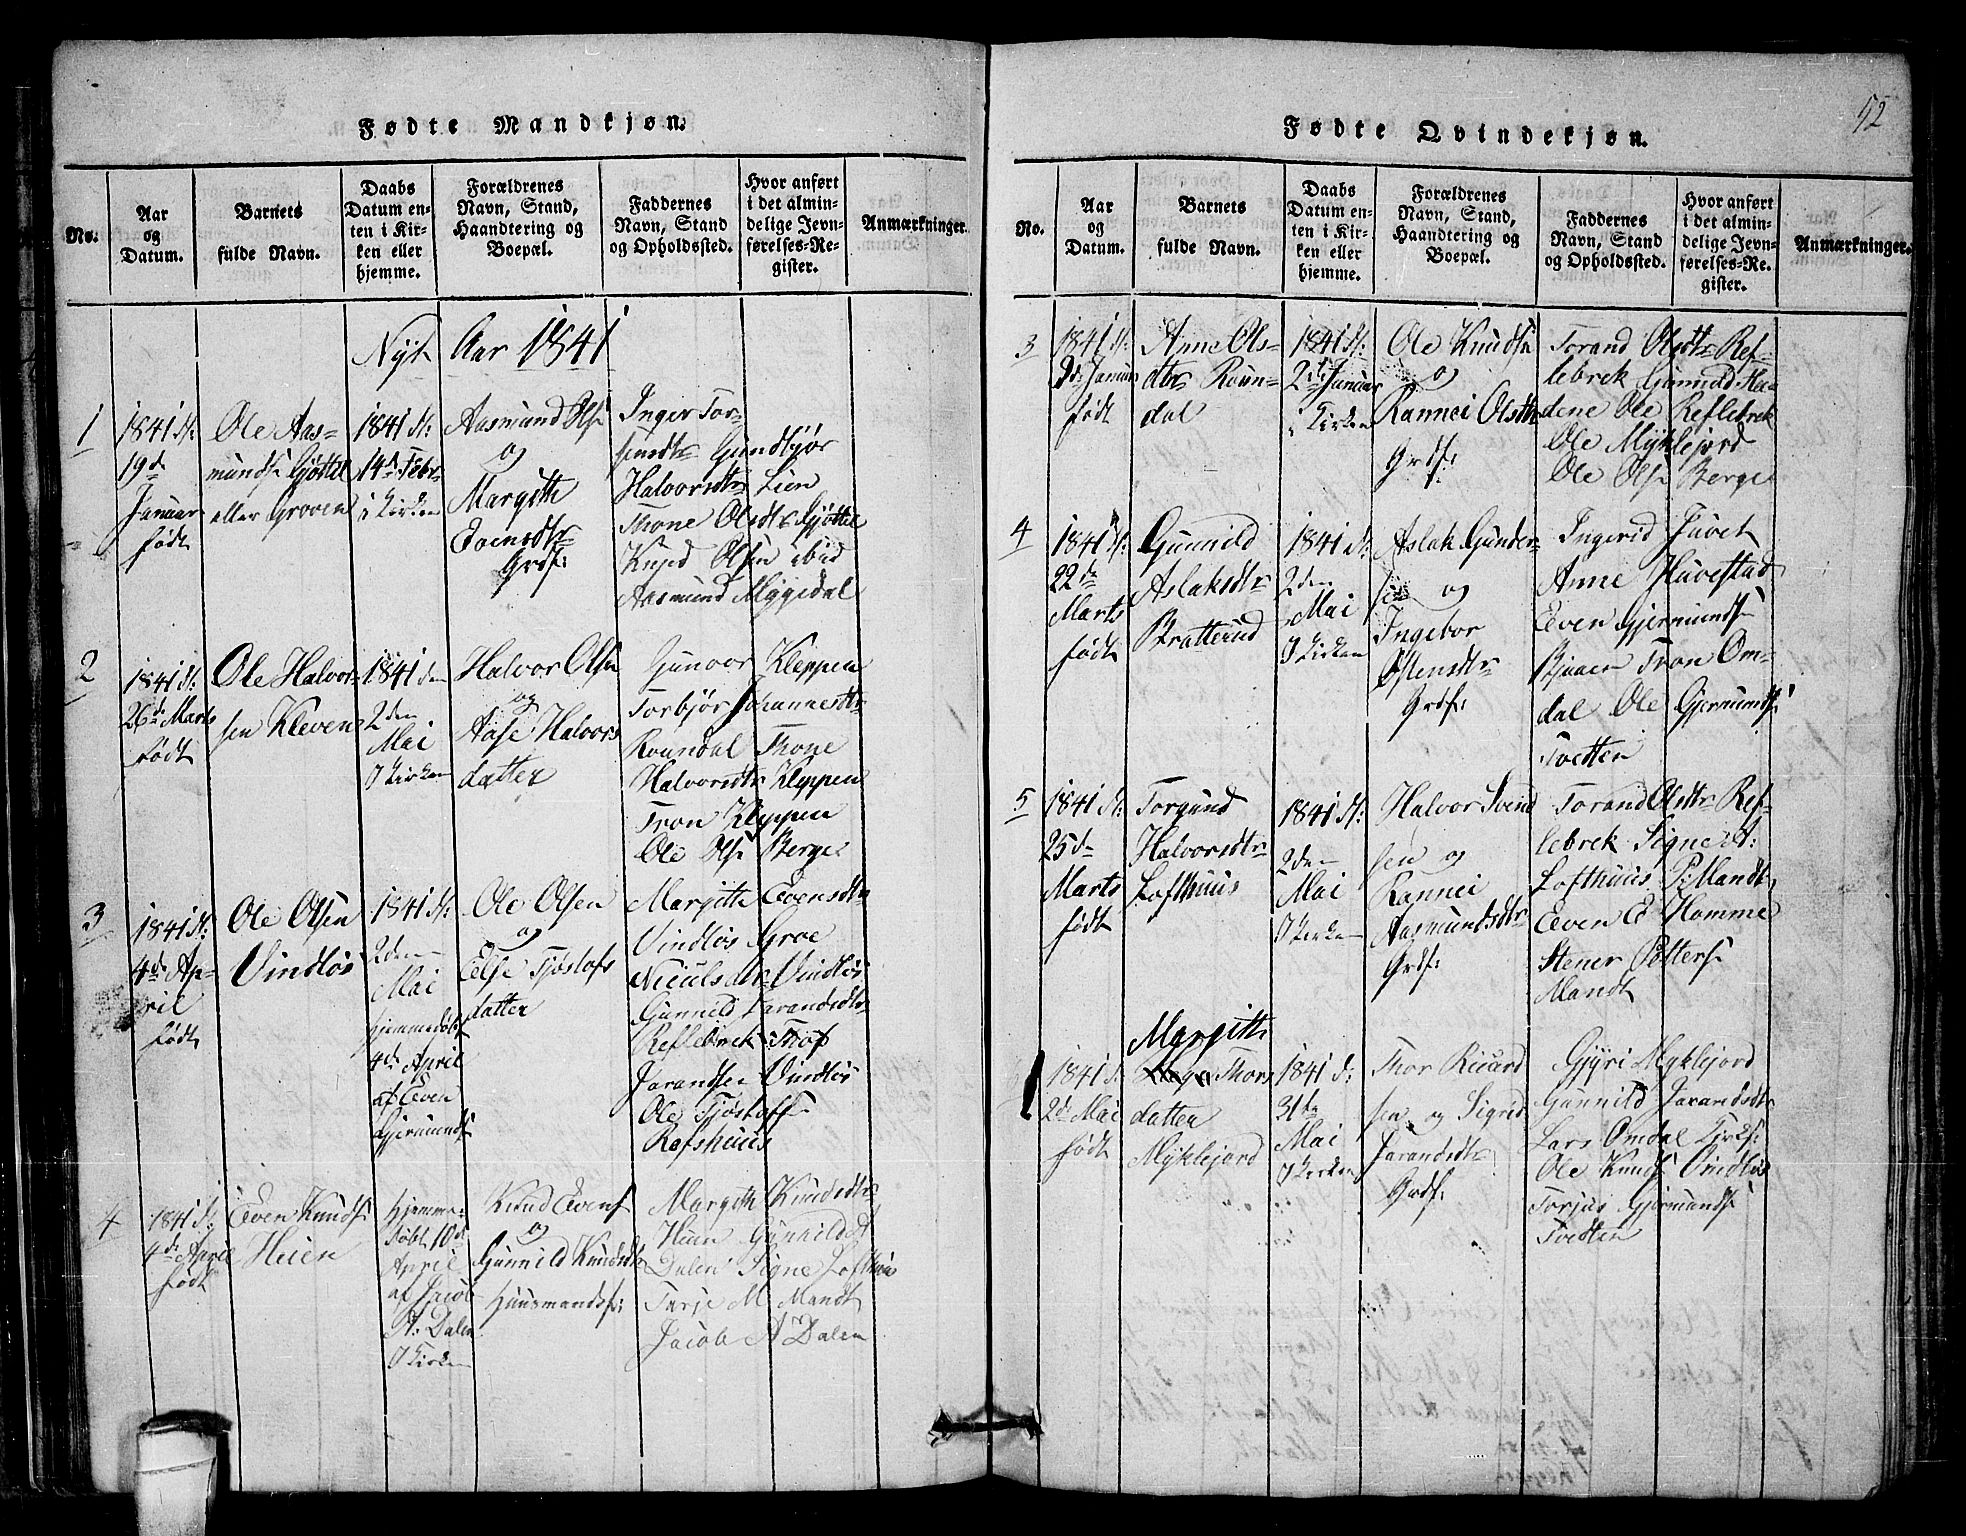 Fødte Mandkjøn.
No.
Aar
og
Datum.
Barnets
fulde Navn.
Daabs
Datum en-
ten i Kir-
ken eller
hjemme.
Forældrenes
Navn, Stand,
Haandtering og
Boepæl.
Faddernes
Navn, Stand
og Opholdssted.
Hvor anført
i det almin-
delige Jevn-
førelses-Re-
gister.
Anmærkninger.
Nyt Aar 1841
1
1841 d:
19de
Januar
født
Ole Aas-
mundsn Gjøttel
eller Groven
1841 d:
14de Febr
i Kirken
Aasmund Olsn
og
Margith
Joensdtr
Grdf:
Inger Tor-
Gundbjør
Halvorsdtr Lien
Thone Olsdtr Gjøttel
Knud Olsen ibid
Aasmund Myggedal
2
1841 d:
26de Marts
født
Ole Halvor-
sen Kleven
1841 den
2den
Mai
I Kirken
Halvor Olsen
og
Aase Halvors
datter
Gunvor Kleppen
Torbjør Johannesdtr
Roundal Thone
Halvorsdtr Kleppen
Tron Kleppen
Ole Olsn Berge
3
1841 d:
4de Ap-
ril
født
Ole Olsen
Vindløs
1841 d:
2den
Mai
hjemmedøbt
4de April
af Even
Gjermunds
Ole Olsen
og
Else Tjøstofs
datter
Margith Evensdtr
Vindløs Groe
Niculsdtr Vindløs
Gunnild Jarandsdtr
Reflebrek Thof
Jarandsen Vindløs
Ole Tjøstoffs
Refshuus
4
1841 d:
4de April
født
Even Knuds
Heien
Hjemme-
døbt 10de
April
af Jacob
A: Dalen
I Kirken
Knud Evens
og
Gunnild Knudsdtr
Huusmandsf:
Margith Knudsdtr
Gunnild
Dalen Signe Lofthuus
Tarje M Mandt
Jacob A Dalen
52
Fødte Qvindekjøn.
No.
Aar
og
Datum.
Barnets
fulde Navn.
Daabs
Datum en-
ten i Kir-
ken eller
hjemme.
Forældrenes
Navn, Stand,
Haandtering og
Boepæl.
Faddernes
Navn, Stand
og Opholdssted.
Hvor anført
i det almin-
delige Jevn-
førelses-Re-
gister.
Anmærkninger.
3
1841 d:
Januar
født
Anne Ols-
dtr Roun-
dal
1841 d:
Januar
i Kirken
Ole Knudsn
og
Rannei Olsdtr
Grdf:
Torand Olsdtr Ref-
lebrek Gunnild
Ole Reflebrek
Ole Myklejord
Ole Olsn Berge
4
1841 d:
22de
Marts
født
Gunnild
Aslaksdtr
Bratterud
1841 d:
2den
Mai
I Kirken
Aslak Gunder-
sen og
Ingebor
Østensdtr
Grdf:
Ingerid Juvet
Anne Huvestad
Even Gjermundsn
Tron Om-
dal Ole Gjermunds
Tvetten
5
1841 d:
25de
Marts
født
Torgund
Halvorsdtr
Lofthuus
1841 d:
2den
Mai
I Kirken
Halvor Svend
sen og
Rannei
Aasmundsdtr
Grdf:
Torand Olsdtr Ref-
lebrek Signe A:
Lofthuus P: Mandt
Even E Homme
Stener Petters
Mandt
1841 d:
2de Mai
født
Margith
Thors
datter
Myklejord
1841 d:
31te
Mai
I Kirken
Thor Ricard
sen og Sigrid
Jarandsdtr
Grdf:
Gyri Myklejord
Gunnild Jarandsdtr
Lars Omdal Kirks:
Ole Knuds Vindløs
Torjus Gjermunds
Tvedten